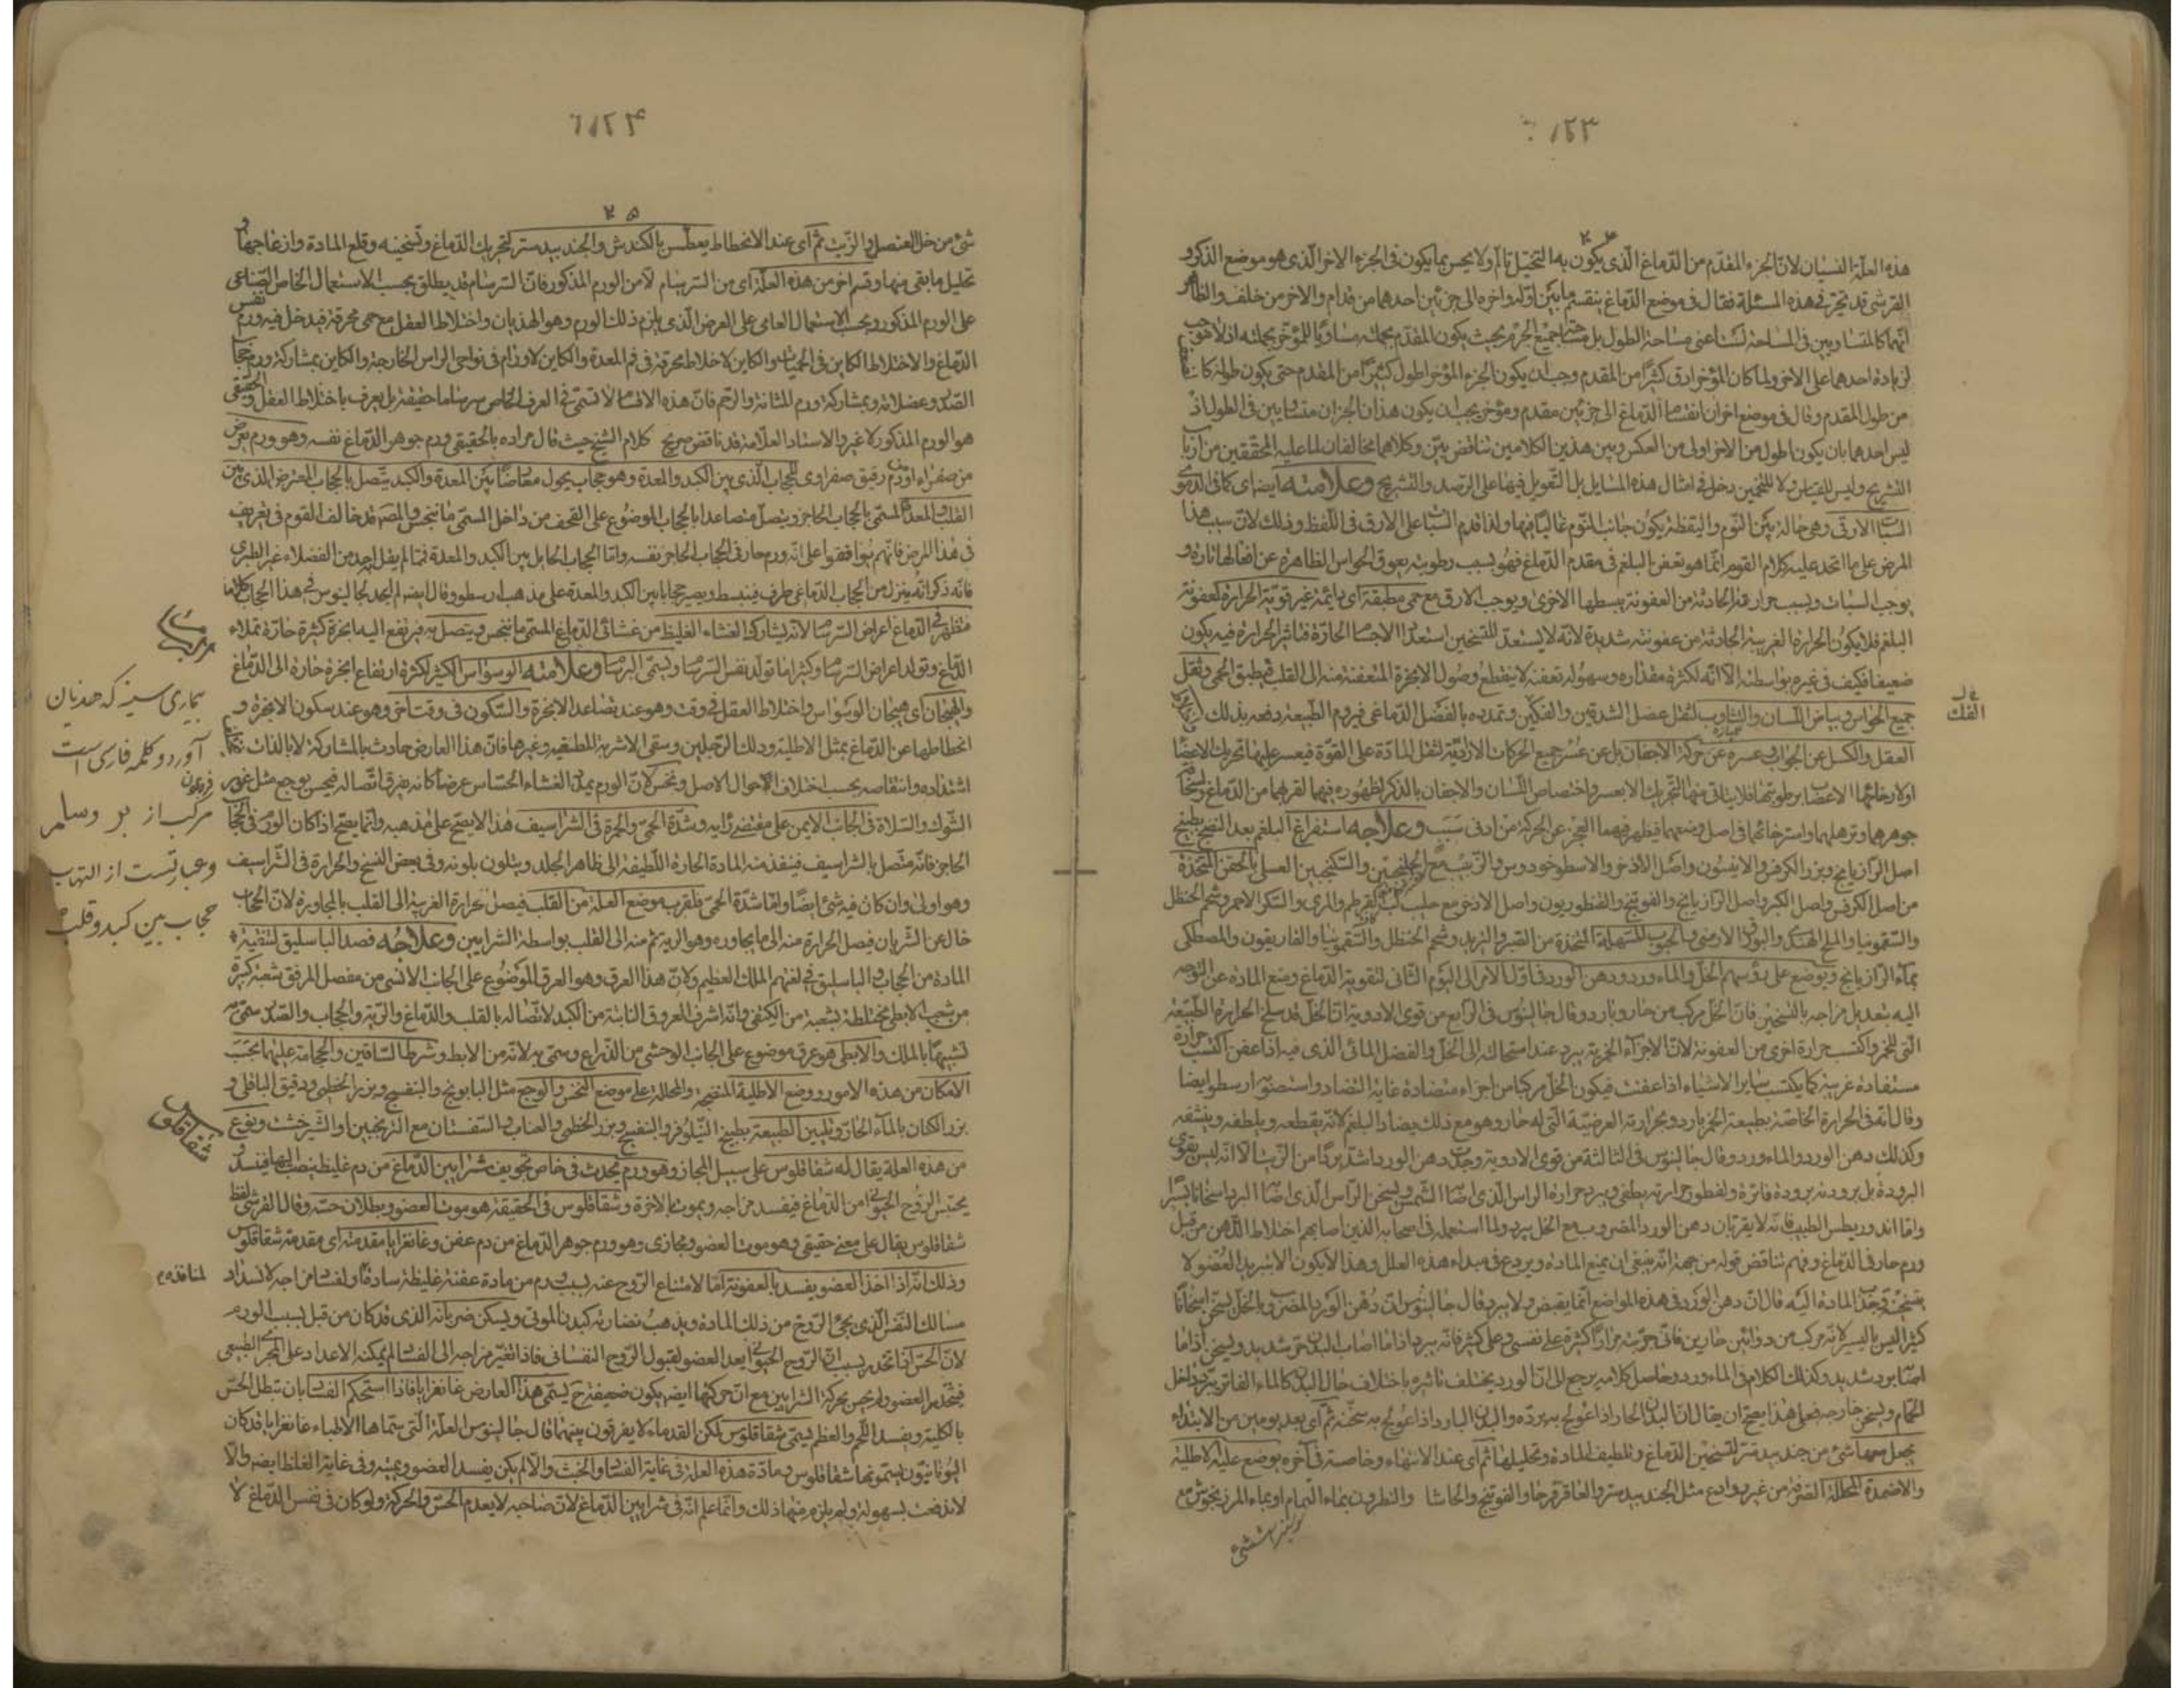 ١٢٣
٢٤
هذه العلة النسيان لان الجزء المقدم من الدماغ الذى يكون به التخيل تالم ولا يحس بما يكون فى الجزء الاخر الذى هو موضع الذكر و
القرشى قد تحير فى هذه المسئلة فقال فى موضع الدماغ ينقسم ما بين اوله واخره الى جزئين احدهما من قدام والاخر من خلف والظاهر
انهما كالمتساويين فى المساحة لست اعنى مساحة الطول بل مساحة جميع الجرم بحيث يكون المقدم بجملته مساويا للمؤخر بجملته اذ لا موجب
لزيادة احدهما على الاخر ولما كان المؤخر ارق كثيرا من المقدم وجب ان يكون الجزء المؤخر اطول كثيرا من المقدم حتى يكون طوله
من طول المقدم وقال فى موضع اخر ان انقسام الدماغ الى جزئين مقدم ومؤخر يجب ان يكون هذان الجزان متساويين فى الطول اذ
ليس احدهما بان يكون اطول من الاخر اولى من العكس وبين هذين الكلامين تناقض بين وكلاهما مخالفان لما عليه المحققين من ارباب
التشريح وليس للقياس ولا للتخمين دخل فى امثال هذه المسايل بل التعويل فيها على الرصد والتشريح وعلامته ايضا اى كما فى الدموى
السبات الارقى وهى حالة بين النوم واليقظة يكون جانب النوم غالبا فيها ولذا قدم السبات على الارق فى اللفظ وذلك لان سبب هذا
المرض على ما اتحد عليه كلام القوم انما هو تعفن البلغم فى مقدم الدماغ فهو بسبب رطوبته يعوق الحواس الظاهرة عن افعالها تارة و
يوجب السبات وبسبب حرارته الحادثة من العفونة يبسطها الاخرى ويوجب الارق مع حمى مطبقة اى دائمة غير قوية الحرارة لعفونة
البلغم فلا يكون الحرارة الغريبة الحادثة من عفونته شديدة لانه لا يستعد للتسخين استعداد الاجسام الحارة فتاثير الحرارة فيه يكون
ضعيفا فكيف فى غيره بواسطته الا انه لكثرة مقداره وسهولة تعفنه لا ينقطع وصول الابخرة المتعفنة منه الى القلب فيطبق الحمى وثقل
جميع الحواس وبياض اللسان والتثاوب لثقل عضل الشدقين والفكين وتمدده بالفضل الدماغى فيروم الطبيعة دفعه بذلك
العقل والكسل عن الجواب عسره عن حركة الاجفان بل عن عسر جميع الحركات الارادية لثقل المادة على القوة فيعسر عليها تحريك الاعضا
او لارخائها الاعصاب برطوبتها فلا يتاتى منها التحريك الا بعسر واختصاص اللسان والاجفان بالذكر لظهوره فيهما لقربهما من الدماغ
جوهرهما وترهلهما واسترخائهما فى اصل وضعهما فيظهر فيهما العجز عن الحركة من ادنى سبب وعلاجه استفراغ البلغم بعد النضج بطبيخ
اصل الرازيانج وبزر الكرفس والانيسون واصل الاذخر والاسطوخودوس والزبيب مع الجلنجبين والسكنجبين العسلى بالحقن المتخذة
من اصل الكرفس واصل الكبر واصل الرازيانج والفوتنج والقنطوريون واصل الاذخر مع حليب لب القرطم والمرى والسكر الاحمر وشحم الحنظل
والسقمونيا والملح الهندى والبورق الارمنى بالحبوب المسهلة المتخذة من الصبر والتربد وشحم الحنظل والسقمونيا والغاريقون والمصطكى
بماء الرازيانج ويوضع على رؤسهم الخل والماء ورد ودهن الورد فى اول الامر الى اليوم الثانى لتقوية الدماغ ومنع المادة عن التوجه
اليه بتعديل مزاجه بالتسخين فان الخل مركب من حار وبارد وقال جالينوس فى الرابع من قوى الادوية ان الخل قد سلخ الحرارة الطبيعية
التى للخمر واكتسب حرارة اخرى من العفونة لان الاجزاء الخمرية يبرد عند استحالته الى الخل والفضل المائى الذى فيه اذا عفن اكتسب حرارة
مستفادة غريبة كما يكتسب ساير الاشياء اذا عفنت فيكون الخل مركبا من اجزاء متضادة غاية التضاد واستصوبه ارسطو ايضا
وقال انه فى الحرارة الخاصة بطبيعة الخمر بارد وبحرارته العرضية التى له حار وهو مع ذلك يضاد البلغم لانه يقطعه ويلطفه وينشفه
وكذلك دهن الورد والماء ورد وقال جالينوس فى الثالثة من قوى الادوية وجدت دهن الورد اشد بردا من الزيت الا انه ليس بقوى
البرودة بل برودته برودة فاترة ولفطور حرارته يطفى ويبرد حرارة الراس الذى اصابه الشمس ويسخن الراس الذى اصابه البرد اسخانا يسيرا
ورم حار فى الدماغ وفهم تناقض قوله من جهة انه ينبغى ان يمنع المادة ويردع فى مبداء هذه العلل وهذا لا يكون الا بتبريد العضو لا
بتسخينه وجذب المادة اليه قال ان دهن الورد فى هذه المواضع انما يقبض ولا يبرد قال جالينوس ان دهن الورد المضروب بالخل يسخن اسخانا
الحمام ويسخن خارجه فعلى هذا يصح ان يقال ان البدن الحار اذا عولج به برده والبدن البارد اذا عولج به سخنه ثم اى بعد يومين من الابتداء
يجعل معها شئ من جندبيدستر لتسخين الدماغ وتلطيف المادة وتحليلها ثم اى عند الانتهاء وخاصته فى آخره يوضع عليه الاطلية
والاضمدة المحللة الصرفة من غير روادع مثل الجندبيدستر والعاقرقرحا والفوتنج والحاشا والنطرون بماء النمام او بماء المرزنجوش مع
الفك
١٢٤
٢٥
شئ من خل العنصل والزيت ثم اى عند الانحطاط يعطس بالكندش والجندبيدستر لتحريك الدماغ وتسخينه وقلع المادة وازعاجها و
تحليل ما بقى منها وقسم اخر من هذه العلة اى من السرسام لا من الورم المذكور فان السرسام قد يطلق بحسب الاستعمال الخاص الصناعى
على الورم المذكور وبحسب الاستعمال العامى على العرض الذى يلزم ذلك الورم وهو الهذيان واختلاط العقل مع حمى محرقة فيدخل فيه ورم نفس
الدماغ والاختلاط الكاين فى الحميات والكاين لاخلاط محرقة فى فم المعدة والكاين لاورام فى نواحى الراس الخارجة والكاين بمشاركة ورم حجاب
الصدر وعضلاته وبمشاركة ورم المثانة والرحم فان هذه الاقسام لا تسمى فى العرف الخاص سرساما حقيقة بل يعرف باختلاط العقل والحقيقى
هو الورم المذكور لا غير والاستاد العلامة قد ناقض صريح كلام الشيخ حيث قال مراده بالحقيقى ورم جوهر الدماغ نفسه وهو ورم يعرض
من صفراء او دم رقيق صفراوى للحجاب الذى بين الكبد والمعدة وهو حجاب يحول معارضا بين المعدة والكبد يتصل بالحجاب المعترض الذى بين
القلب والمعدة المسمى بالحجاب الحاجز ويتصل متصاعدا بالحجاب الموضوع على القحف من داخل المسمى ماننجس والمصنف قد خالف القوم فى تعريف
فى هذا المرض فانهم توافقوا على انه ورم حار فى الحجاب الحاجز نفسه واما الحجاب الحايل بين الكبد والمعدة فمما لم يقل به احد من الفضلاء غير الطبرى
فانه ذكر انه ينزل من الحجاب الدماغى طرف فينبسط ويصير حجابا بين الكبد والمعدة على مذهب ارسطو وقال ايضا لم اجد لجالينوس فى هذا الحجاب كلاما
فتظهر فى الدماغ اعراض السرسام لانه يشارك الغشاء الغليظ من غشائى الدماغ المسمى ماننجس ويتصل به فيرتفع اليه ابخرة كثيرة حارة تملاء
الدماغ ويتولد اعراض السرسام وكثيرا ما تولد نفس السرسام ويسمى البرسام وعلامته الوسواس الكثير لكثرة ارتفاع ابخرة حارة الى الدماغ
والهيجان اى هيجان الوسواس واختلاط العقل فى وقت وهو عند تصاعد الابخرة والسكون فى وقت اخر وهو عند سكون الابخرة و
انحطاطها عن الدماغ بمثل الاطلية ودلك الرجلين وسقى الاشربة المطفية وغيرها فان هذا العارض حادث بالمشاركة لا بالذات
اشتداده وانتقاصه بحسب اختلاف احوال الاصل ونخس لان الورم يمدد الغشاء الحساس عرضا كانه يفرق اتصاله فيحس بوجع مثل غرز
الحاجز فانه متصل بالشراسيف فينفذ منه المادة الحارة اللطيفة الى ظاهر الجلد ويتلون بلونه وفى بعض النسخ والحرارة فى الشراسيف
وهو اولى وان كان فيه شئ ايضا واما شدة الحمى فلقرب موضع العلة من القلب فيصل الحرارة الغريبة الى القلب بالمجاورة لان الحجاب
خال عن الشريان فيصل الحرارة منه الى ما يجاوره وهو الرية ثم منه الى القلب بواسطة الشرايين وعلاجه فصد الباسليق لتنقية
المادة من الحجاب والباسليق فى لغتهم الملك العظيم ولان هذا العرق وهو العرق الموضوع على الجانب الانسى من مفصل المرفق شعبة كبيرة
من شعب الابطى مختلطة بشعبة من الكتفى وانه اشرف العروق النابتة من الكبد لاتصاله بالقلب والدماغ والرية والحجاب والصدر سمى به
تشبيها بالملك والابطى هو عرق موضوع على الجانب الوحشى من الذراع وسمى به لانه من الابط وشرط الساقين والحجامة عليهما بحسب
الامكان من هذه الامور ووضع الاطلية المنضجة والمحللة على موضع النخس والوجع مثل البابونج والبنفسج وبزر الخطمى ودقيق الباقلى و
بزر الكتان بالماء الحار وتليين الطبيعة بطبيخ النيلوفر والبنفسج وبزر الخطمى والعناب والسفستان مع الترنجبين او الشيرخشت ونوع
من هذه العلة يقال له شقاقلوس على سبيل المجاز وهو ورم يحدث فى خاص تجويف شرايين الدماغ من دم غليظ ينصب اليها فينسد و
يحتبس الروح الحيوانى من الدماغ فيفسد مزاجه ويموت بالاخرة وشقاقلوس فى الحقيقة هو موت العضو وبطلان حسه وقال القرشى لفظ
شقاقلوس يقال على معنى حقيقى وهو موت العضو ومجازى وهو ورم جوهر الدماغ من دم عفن وغانغرايا مقدمته اى مقدمة شقاقلوس
وذلك انه اذا اخذ العضو يفسد بالعفونة اما لامتناع الروح عنه بسبب ورم من مادة عفنة غليظة سادة او لفساد مزاجه لانسداد
مسالك النفس الذى يحيى الروح من ذلك المادة ويذهب نضارته كبدن الموتى ويسكن ضربانه الذى قد كان من قبل بسبب الورم
لان الحس انما تخدر بسبب ان الروح الحيوانى يعد العضو لقبول الروح النفسانى فاذا تغير مزاجه الى الفساد لم يمكنه الاعداد على المجرى الطبيعى
فيخدر العضو ولم يحس بحركة الشرايين مع ان حركتها ايضا يكون ضعيفة ح يسمى هذا العارض غانغرايا فاذا استحكم الفساد بان تبطل الحس
بالكلية ويفسد اللحم والعظم ليسمى شقاقلوس لكن القدماء لا يفرقون بينهما قال جالينوس العلة التى سماها الاطباء غانغرايا قد كان
اليونانيون يسمونها شقاقلوس ومادة هذه العلة فى غاية الفساد والخبث والا لم يكن يفسد العضو ويميته وفى غاية الغلظ ايضا والا
لاندفعت بسهولة ولم يلزم منها ذلك وانما علم انه فى شرايين الدماغ لان صاحبه لا يعدم الحس والحركة ولو كان فى نفس الدماغ لا
بيمارى سينه كه هذيان
آورد و كلمه فارسى است
مركب از بر و سام
و عبارتست از التهاب
حجاب بين كبد و قلب
شقاقلوس